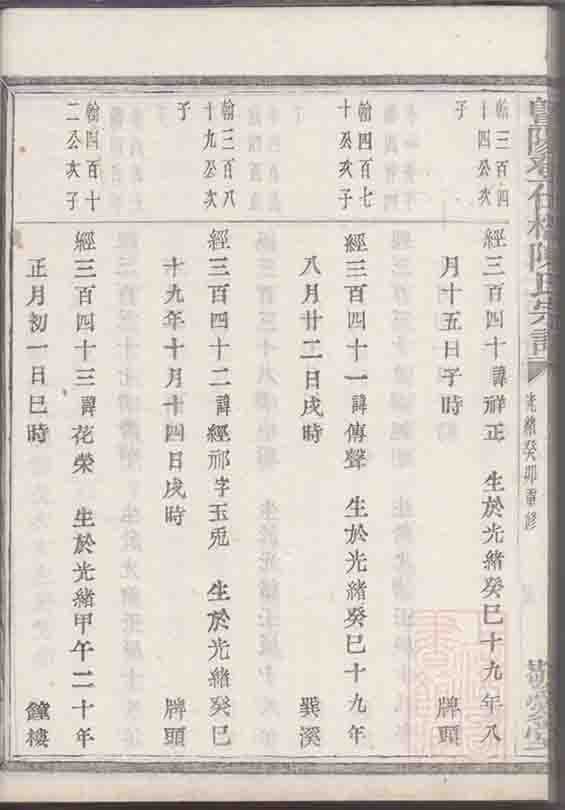 光緒癸卯重修
翰三百四
十四公次
子
經三百四十諱祥正 生於光緒癸巳十九年八
月十五日子時 牌頭
翰四百七
十公次子
經三百四十一諱傳聲 生於光緒癸巳十九年
八月廿二日戌時 巽溪
翰三百八
十九公次
子
經三百四十二諱經邢字玉兎 生於光緒癸巳
十九年十月十四日戌時 牌頭
翰四百十
二公次子
經三百四十三諱花榮 生於光緒甲午二十年
正月初一日巳時 鐘樓